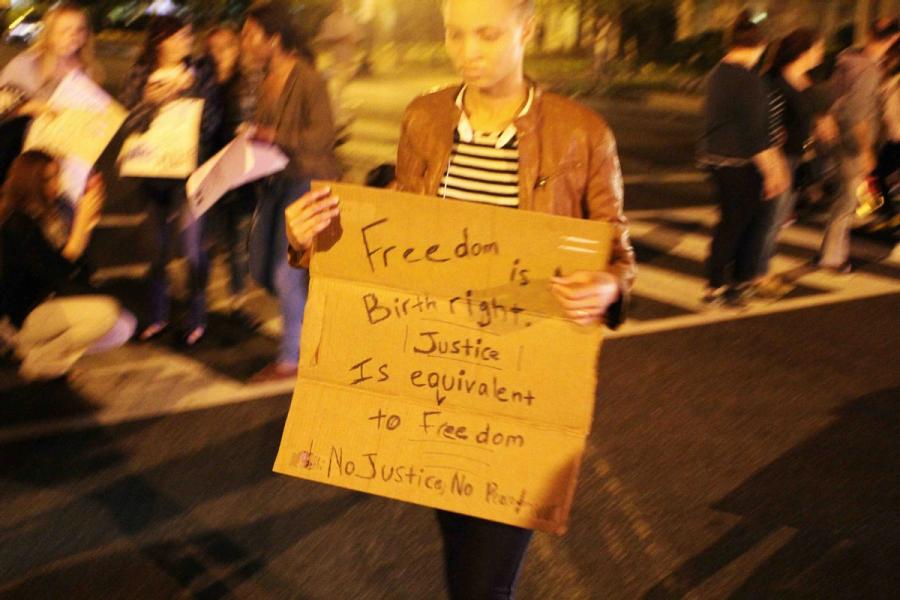 Freedom
is
Birth right.
Justice
Is equivalent
to Freedom
No Justice, No